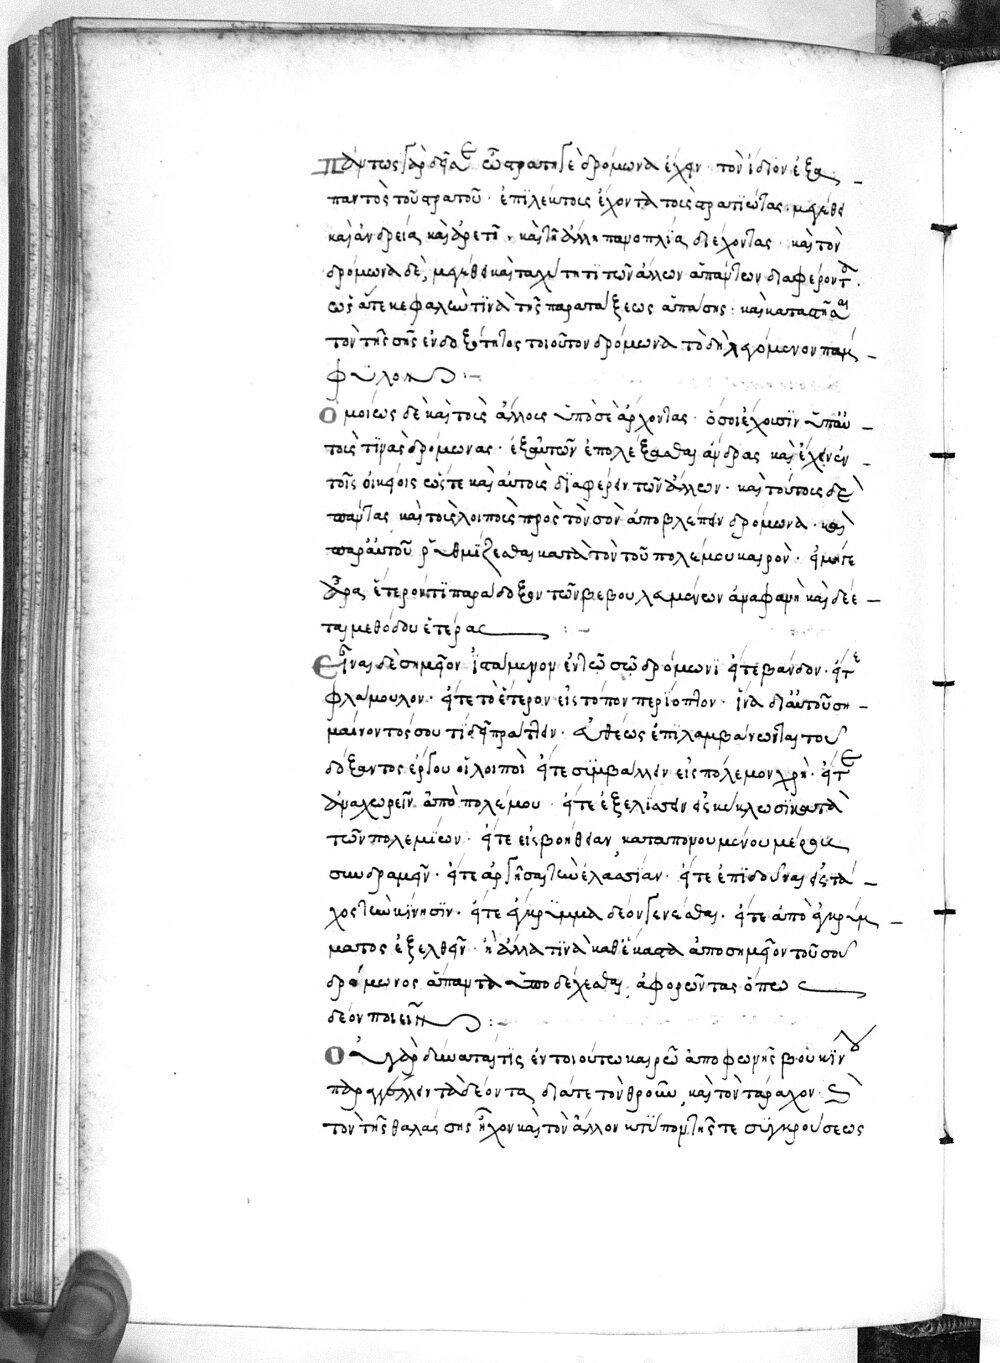 Πάντως γὰρ δεῖ σε ὦ στρατηγὲ δρόμωνα ἔχειν τὸν ἴδιον ἐξ ἅ
παντὸς τοῦ στρατοῦ · ἐπιλέκτοις ἔχοντα τοὺς στρατιώτας μεγέθει
καὶ ἀνδρεία καὶ ἀρετῆ · καὶ τῆ ἄλλη πανοπλία διέχοντας · καὶ τὸν
δρόμωνα δὲ, μεγέθει καὶ ταχύτητι τῶν ἄλλων ἁπάντων διαφέροντα ·
ὡς ἅτε κεφαλὴν τινὰ τῆς παρατάξεως ἁπάσης · καὶ καταστῆσαι
τὸν τῆς σῆς ἐνδοξότητος τοιοῦτον δρόμωνα τὸ δὴ λεγόμενον παμ
φυλον :-
Ὁμοίως δὲ καὶ τοὺς ἄλλους ὑπὸ σὲ ἄρχοντας · ὅσοι ἔχουσιν ὑπ' αὐ
τοὺς τινὰς δρόμωνας · ἐξ αὐτῶν ἐπολέξασθαι ἄνδρας καὶ ἔχειν ἐν
τοῖς οἰκείοις ὥστε καὶ αὐτοὺς διαφέρειν τῶν ἄλλων · καὶ τούτους δὲ
πάντας καὶ τοὺς λοιποὺς πρὸς τὸν σὸν ἀποβλέπειν δρόμωνα · καὶ
παρ' αὐτοῦ ῥυθμίζεσθαι κατὰ τὸν τοῦ πολέμου καιρὸν · εἰ μήτε
ἄρα ἕτερόν τι παράδοξον τῶν βεβουλευμένων ἀναφανῆ καὶ δέε
ται μεθόδου ἑτέρας :-
Εἶναι δὲ σημεῖον ἱστάμενον ἐν τῶ σῶ δρόμωνι εἴτε βάνδον · εἴτε
φλάμουλον · εἴτε τὸ ἕτερον εἰς τόπον περίοπτον · ἵνα δι' αὐτοῦ ση
μαίνοντός σου τί δεῖ πράττειν · εὐθέως ἐπιλαμβάνωνται τοῦ
δόξαντος ἔργου οἱ λοιποὶ εἴτε συμβάλλειν εἰς πόλεμον χρὴ · εἴτε
ἀναχωρεῖν ἀπὸ πολέμου · εἴτε ἐξελίσσειν εἰς κύκλωσιν κατὰ
τῶν πολεμίων · εἴτε εἰς βοήθειαν καταπονουμένου μέρους
συνδραμεῖν · εἴτε ἀργῆσαι τὴν ἐλασίαν · εἴτε ἐπιδοῦναι εἰς τά
χος τὴν κίνησιν · εἴτε ἔγκρυμμα δέον γενέσθαι · εἴτε ἀπὸ ἐγκρύμ
ματος ἐξελθεῖν · ἢ ἄλλα τινὰ καθ' ἕκαστα ἀπὸ σημεῖον τοῦ σοῦ
δρόμωνος ἅπαντα ὑποδέχεσθαι ἀφορῶντας ὅπως
δέον ποιεῖν :-
Οὐ γὰρ δύναταί τις ἐν τοιούτω καιρῶ ἀπὸ φωνῆς ἢ βουκίνου
παραγγέλλειν τὰ δέοντα διά τε τὸν θροῦν, καὶ τὸν τάραχον ·
τὸν τῆς θαλάσσης ἦχον καὶ τὸν ἄλλον κτύπον τῆς τε συγκρούσεως